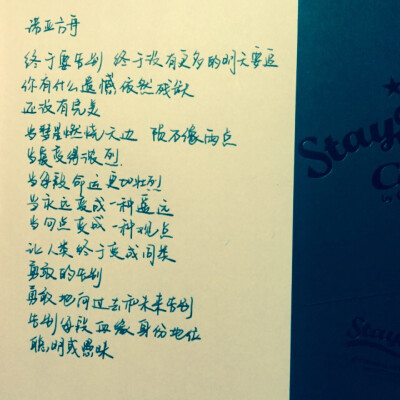 诺亚方舟
终于要告别 终于没有更多的明天要追
你有什么遗憾依然残缺
还没有完美
当彗星燃烧天边 陨石像雨点
当爱变得浓烈
当每段命运更加壮烈
当永远变成一种遥远
当句点变成一种观点
让人类终于变成同类
勇敢的告别
勇敢地向过去和未来告别
告别每段血缘身份地位
聪明或愚昧
Stay
C
Stay